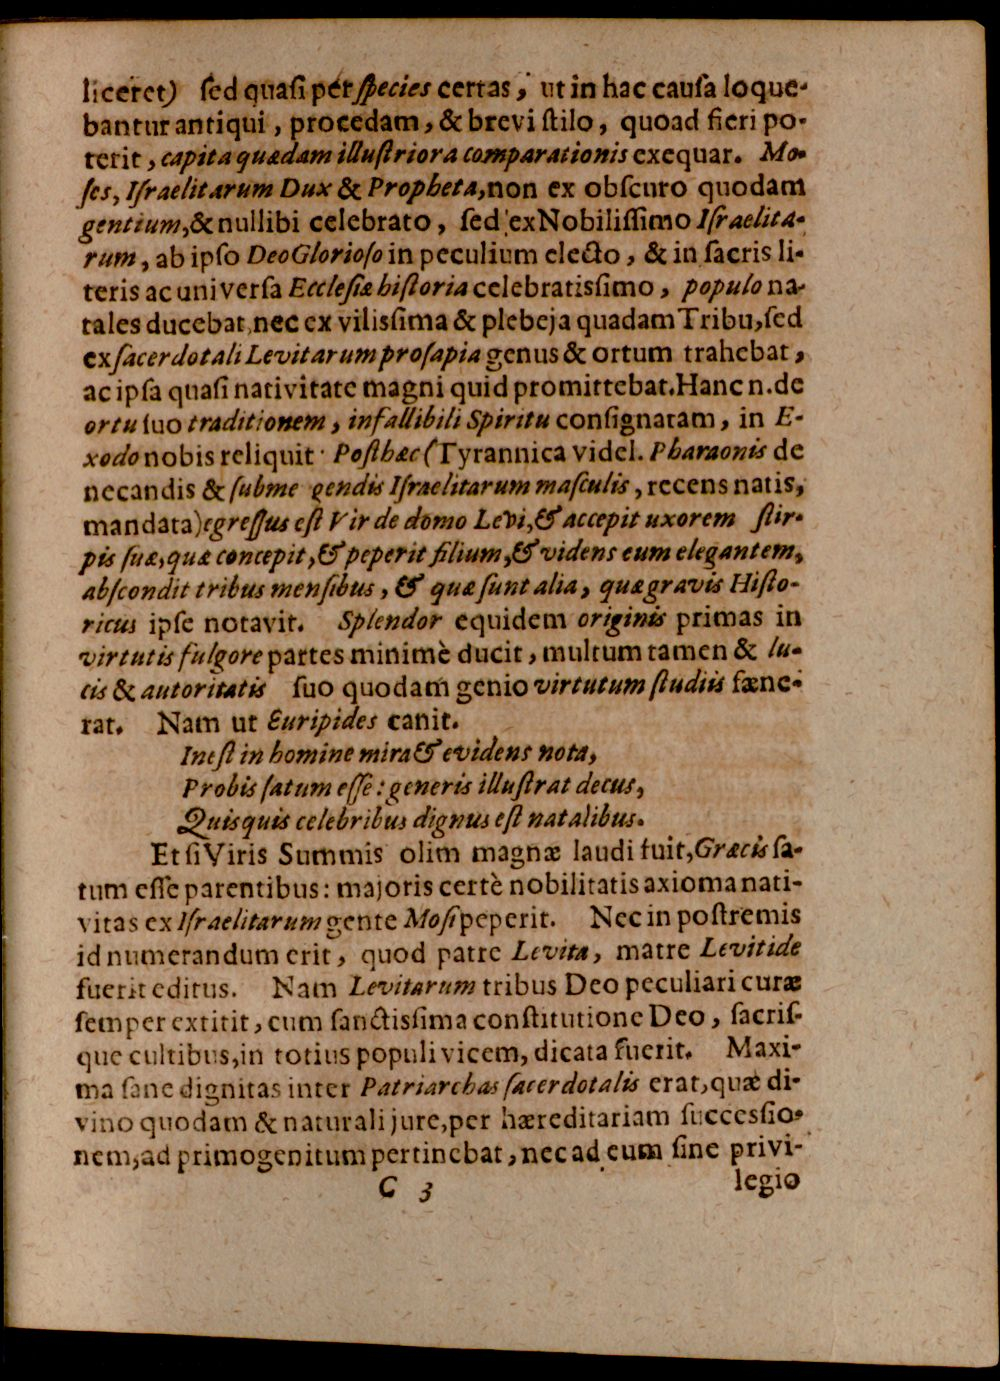 liceret) ſed quaſi per ſpecies certas, ut in hac cauſa loque-
bantur antiqui, procedam, & brevi ſtilo, quoad fieri po-
terit, capita quædam illuſtriora comparationis exequar. Mo-
ſes, Iſraelitarum Dux & Propheta, non ex obſcuro quodam
gentium, & nullibi celebrato, ſed ex Nobiliſſimo Iſraelita-
rum, ab ipſo Deo Glorioſo in peculium electo, & in ſacris li-
teris ac univerſa Eccleſiæ hiſtoria celebratisſimo, populo na-
tales ducebat, nec ex vilisſima & plebeja quadam Tribu, ſed
ex ſacerdotali Levitarum proſapia genus & ortum trahebat,
ac ipſa quaſi nativitate magni quid promittebat. Hanc n. de
ortu ſuo traditionem, infallibili Spiritu conſignatam, in E-
xodo nobis reliquit· Poſthæc (Tyrannica videl. Pharaonis de
necandis & ſubme gendis Iſraelitarum maſculis, recens natis,
mandata) egreſſus eſt Vir de domo Levi, & accepit uxorem ſtir-
pis ſuæ, quæ concepit, & peperit filium, & videns eum elegantem,
abſcondit tribus menſibus, & quæ ſunt alia, quæ gravis Hiſto-
ricus ipſe notavit. Splendor equidem originis primas in
virtutis fulgore partes minimè ducit, multum tamen & lu-
cis & autoritatis ſuo quodam genio virtutum ſtudiis fæne-
rat. Nam ut Euripides canit.
Ineſt in homine mira & evidens nota,
Probis ſatum eſſe: generis illuſtrat decus,
Quisquis celebribus dignus eſt natalibus.
Et ſi Viris Summis olim magnæ laudi fuit, Græcis ſa-
tum eſſe parentibus: majoris certè nobilitatis axioma nati-
vitas ex Iſraelitarum gente Moſi peperit. Nec in poſtremis
id numerandum erit, quod patre Levita, matre Levitide
fuerit editus. Nam Levitarum tribus Deo peculiari curæ
ſemper extitit, cum ſanctisſima conſtitutione Deo, ſacriſ-
que cultibus, in totius populi vicem, dicata fuerit. Maxi-
ma ſane dignitas inter Patriarchas ſacerdotalis erat, quæ di-
vino quodam & naturali jure, per hæreditariam ſuccesſio-
nem, ad primogenitum pertinebat, nec ad eum ſine privi-
C 3 legio